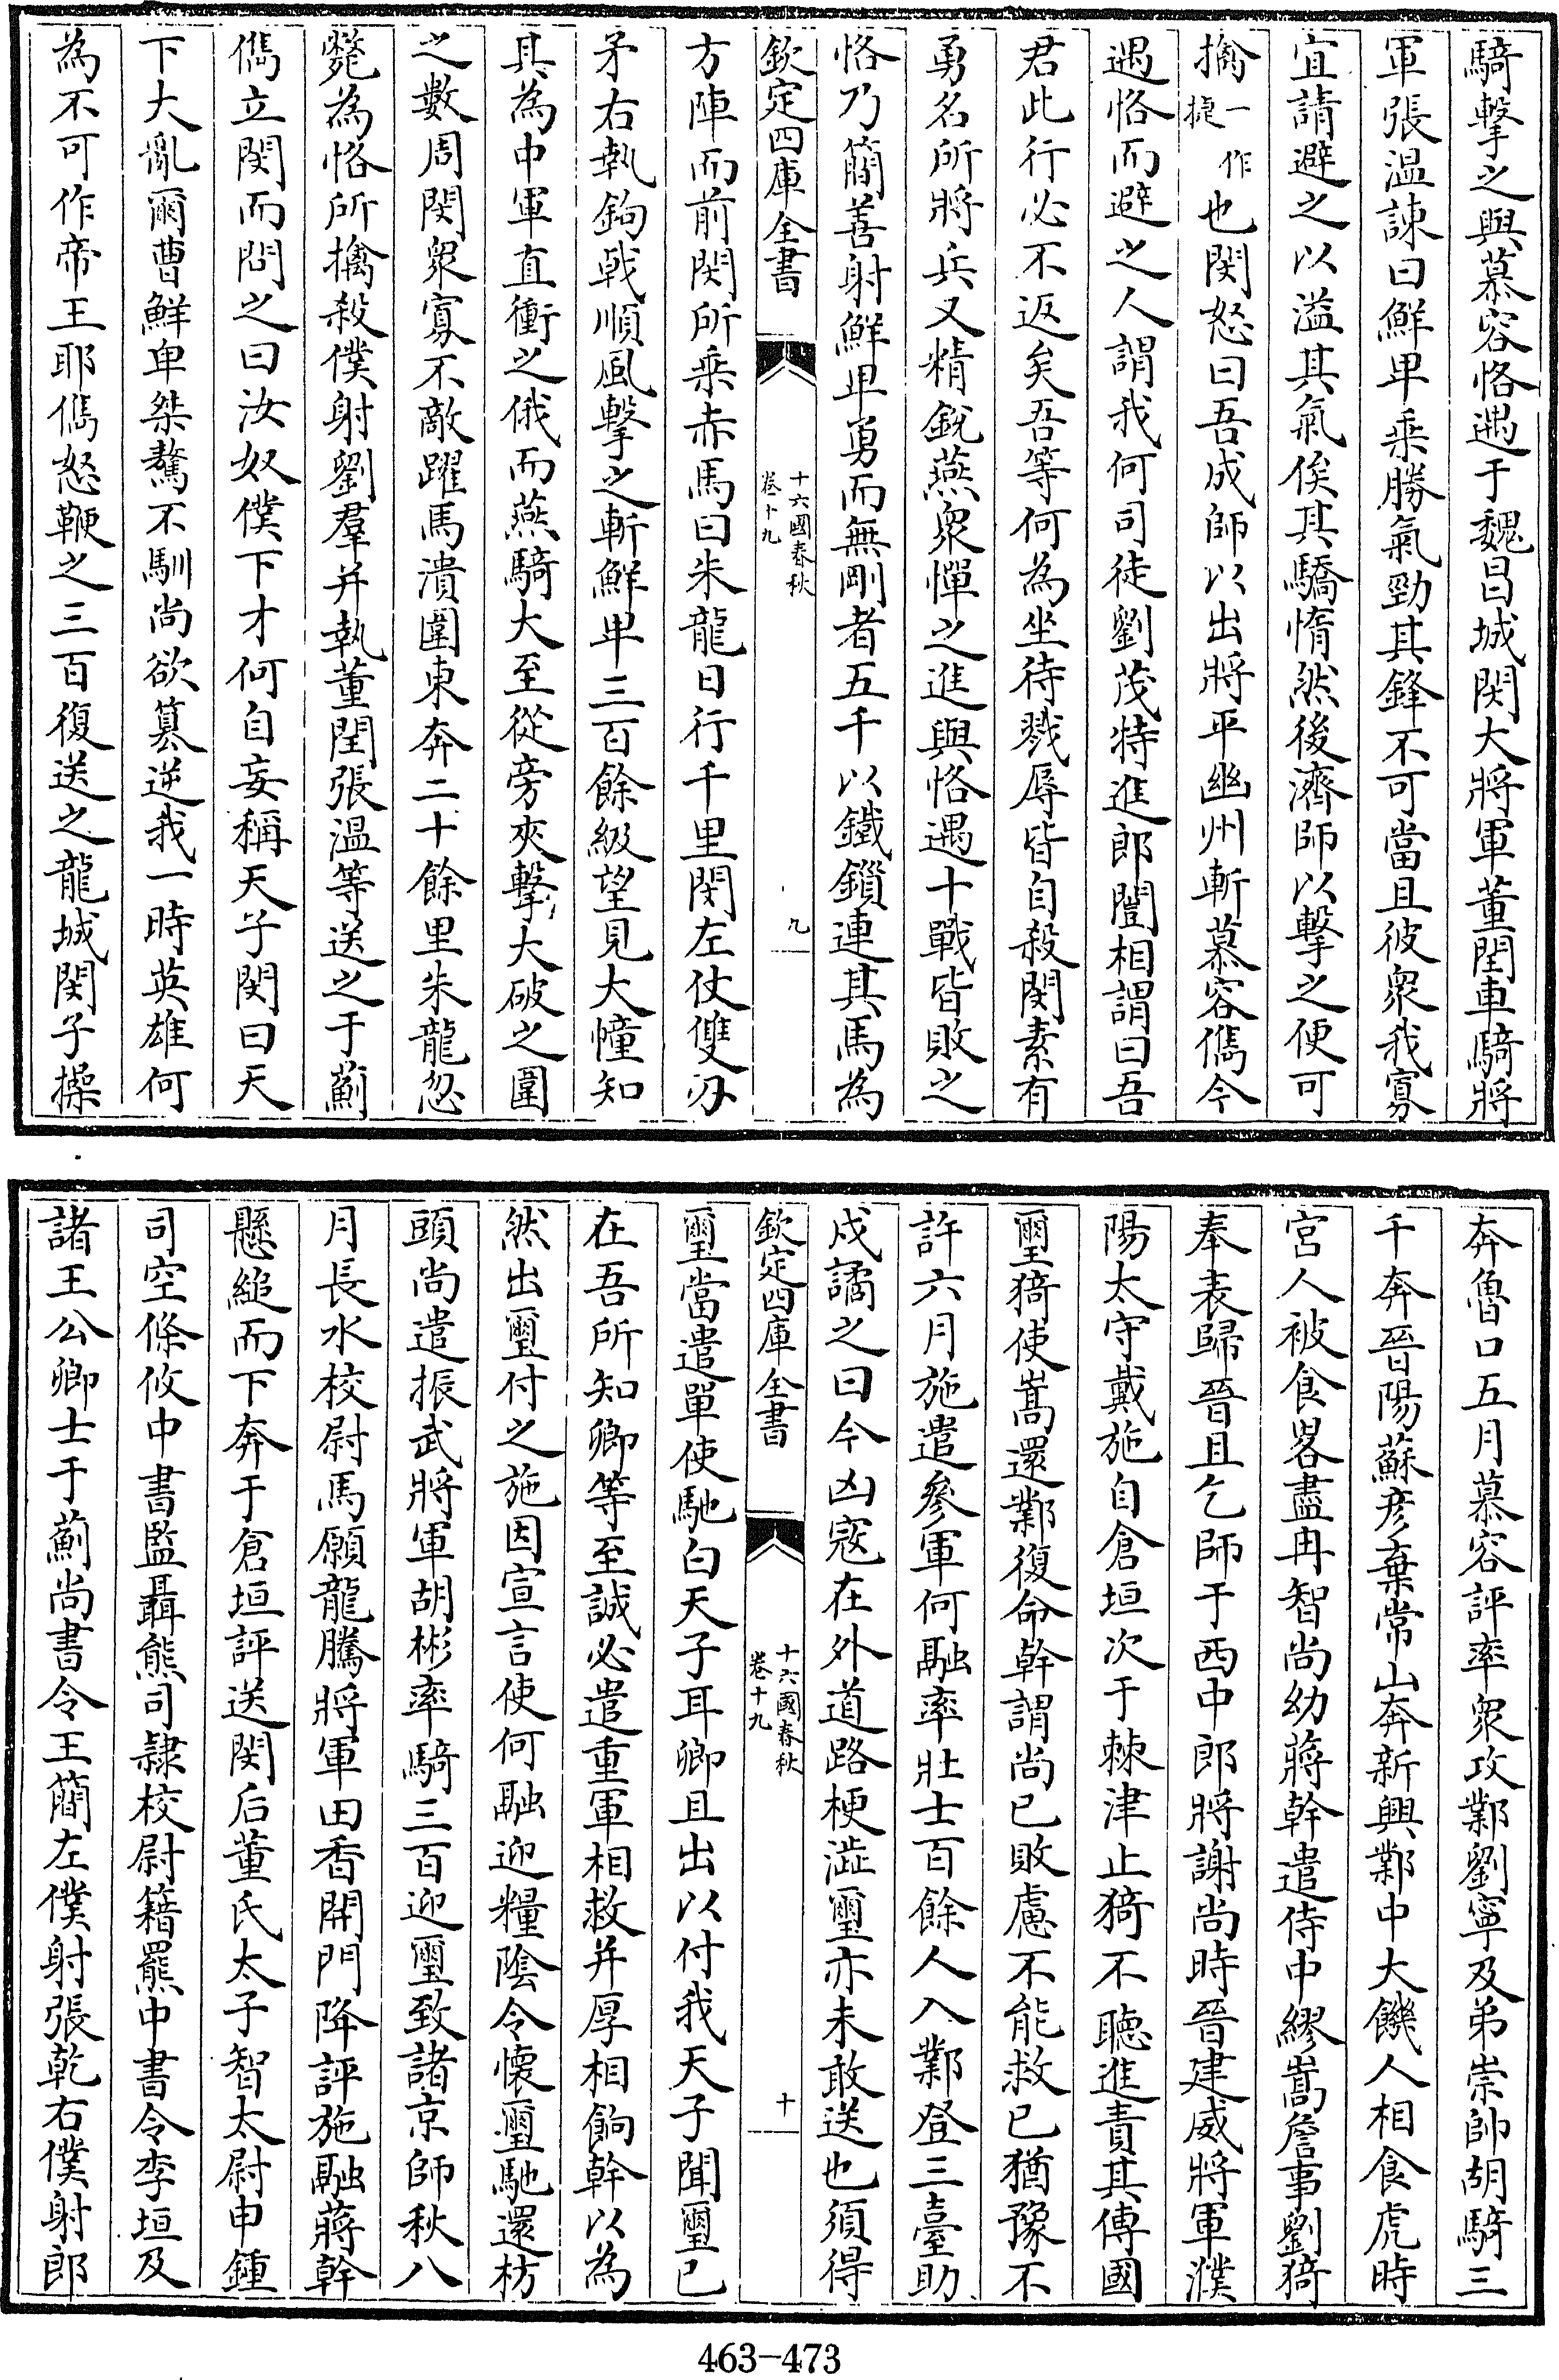 騎擊之與慕容恪遇于魏昌城閔大將軍董閏車騎將
軍張温諫曰鮮卑乗勝氣勁其鋒不可當且彼衆我寡
宜請避之以溢其氣俟其驕惰然後濟師以擊之便可
擒一作捷也閔怒曰吾成師以出將平幽州斬慕容儁今
遇恪而避之人謂我何司徒劉茂特進郎闓相謂曰吾
君此行必不返矣吾等何為坐待戮辱皆自殺閔素有
勇名所將兵又精銳燕衆憚之進與恪遇十戰皆敗之
恪乃簡善射鮮卑勇而無剛者五千以鐵鎖連其馬為
欽定四庫全書
十六國春秋
卷十九
九
方陣而前閔所乗赤馬曰朱龍日行千里閔左仗雙刃
矛右執鉤戟順風擊之斬鮮卑三百餘級望見大幢知
其為中軍直衝之俄而燕騎大至從旁夾擊大破之圍
之數周閔衆寡不敵躍馬潰圍東奔二十餘里朱龍忽
斃為恪所擒殺僕射劉羣并執董閏張温等送之于薊
儁立閔而問之曰汝奴僕下才何自妄稱天子閔曰天
下大亂爾曹鮮卑桀驁不馴尚欲篡逆我一時英雄何
為不可作帝王耶儁怒鞭之三百復送之龍城閔子操
奔魯口五月慕容評率衆攻鄴劉寧及弟崇帥胡騎三
千奔晉陽蘇彥棄常山奔新興鄴中大饑人相食虎時
宮人被食畧盡冉智尚幼蔣幹遣侍中繆嵩詹事劉猗
奉表歸晉且乞師于西中郎將謝尚時晉建威將軍濮
陽太守戴施自倉垣次于棘津止猗不聽進責其傳國
璽猗使嵩還鄴復命幹謂尚已敗慮不能救已猶豫不
許六月施遣參軍何融率壯士百餘人入鄴登三臺助
戍譎之曰今凶寇在外道路梗澁璽亦未敢送也須得
欽定四庫全書
十六國春秋
卷十九
十
璽當遣單使馳白天子耳卿且出以付我天子聞璽已
在吾所知卿等至誠必遣重軍相救并厚相餉幹以為
然出璽付之施因宣言使何融迎糧陰令懷璽馳還枋
頭尚遣振武將軍胡彬率騎三百迎璽致諸京師秋八
月長水校尉馬願龍騰將軍田香開門降評施融蔣幹
懸縋而下奔于倉垣評送閔后董氏太子智太尉申鍾
司空條攸中書監聶熊司隸校尉籍羆中書令李垣及
諸王公卿士于薊尚書令王簡左僕射張乾右僕射郎
463-473